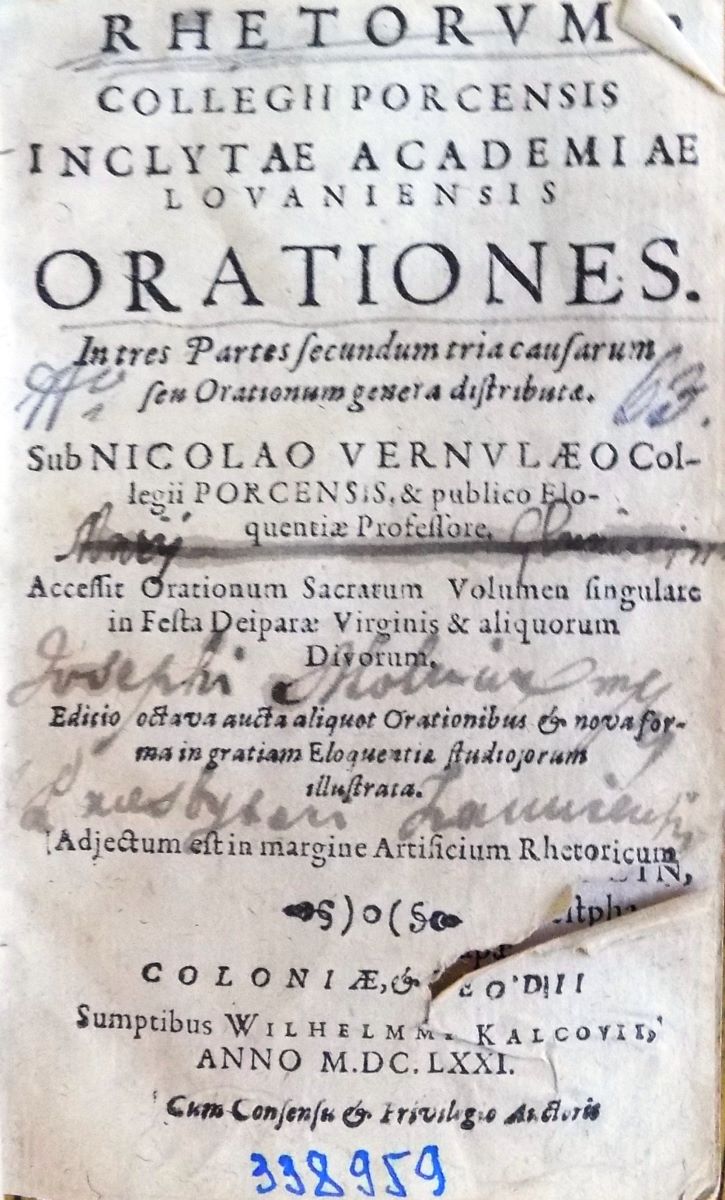 RHETORVM
COLLEGII PORCENSIS
INCLYTAE ACADEMIAE
LOVANIENSIS
ORATIONES.
In tres Partes ſecundum tria cauſarum
ſeu Orationum genera diſtributæ.
63.
Sub NICOLAO VERNVLÆO Col-
legii PORCENSIS, & publico Elo-
quentiæ Profeſſore,
Acceſſit Orationum Sacratum Volumen ſingulare
in Feſta Deiparæ Virginis & aliquorum
Divorum,
Josephi
Editio octava aucta aliquot Orationibus & nova for-
ma in gratiam Eloquentiæ ſtudioſorum
illuſtrata.
Presbyteri
Adjectum eſt in margine Artificium Rhetoricum
IN,
§)o(§
COLONIÆ, &
Sumptibus WILHELMMI KALCOVII,
ANNO M.DC.LXXI.
Cum Conſenſu & Privilegio Auctoris
338959